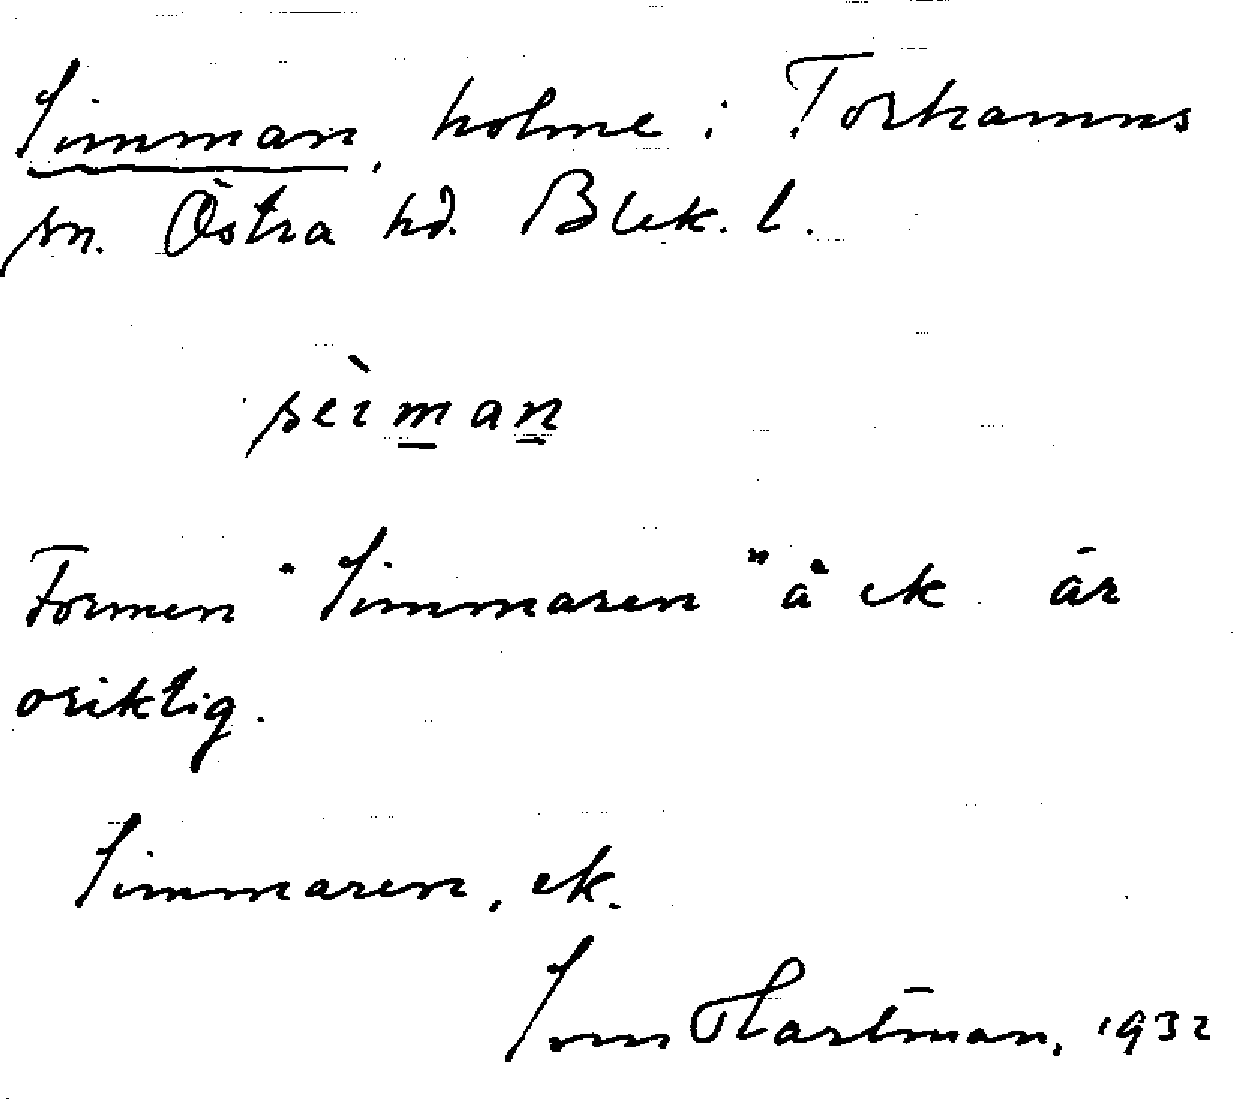 Simman, holme i Torhamns
sn. Östra hd. Blek. l.
sèıman
Formen "Simmaren" å ek är
oriktig.
Simmaren, ek.
Hartman, 1932